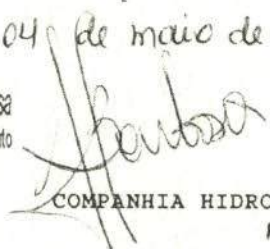 04 de maio de
sa
to
COMPANHIA HIDRO